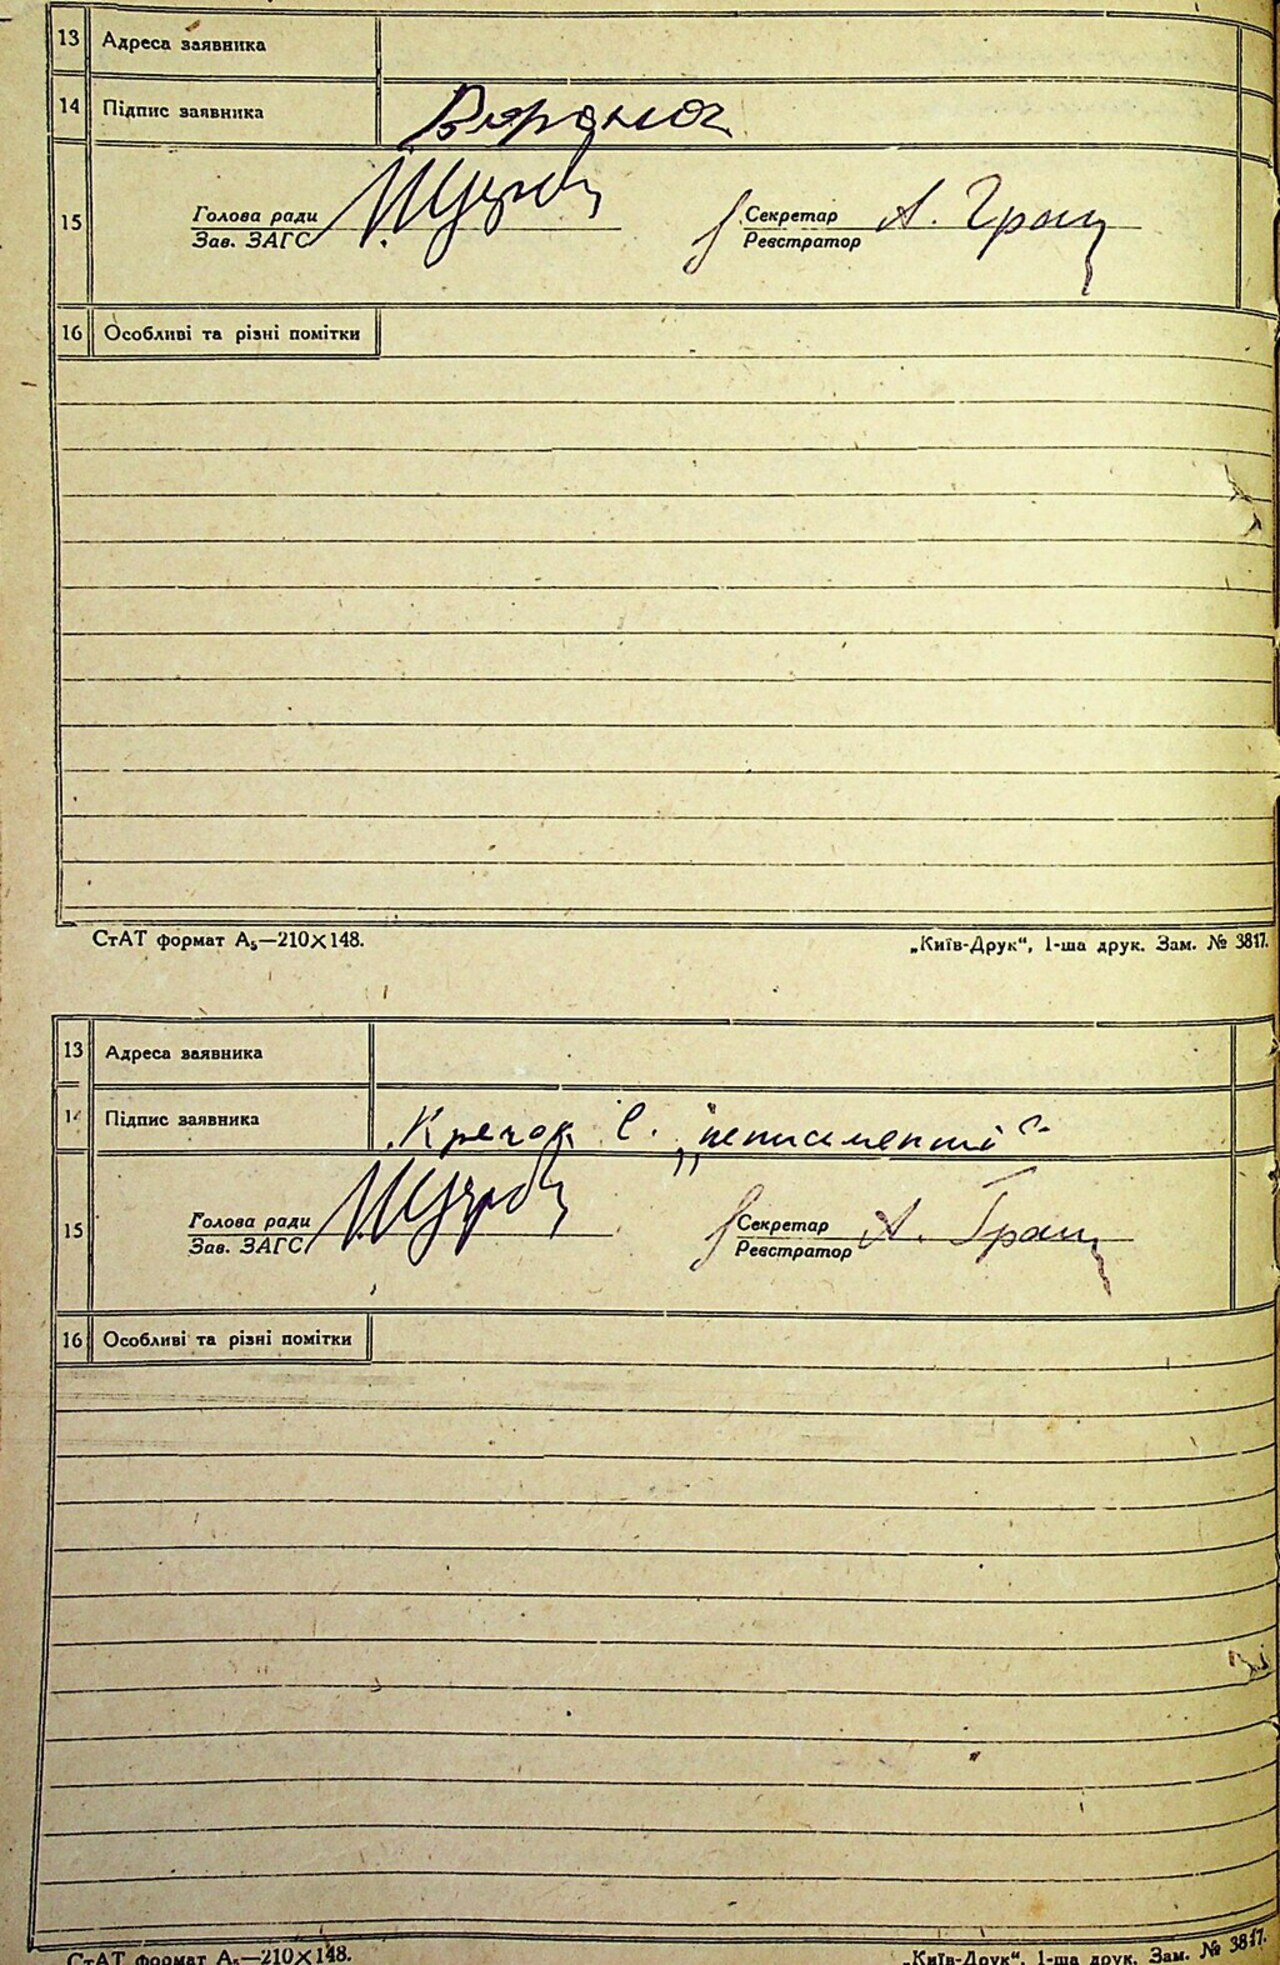 13 Адреса заявника
14 Підпис заявника
15 Голова ради Секретар А. Гращ
Зав. ЗАГС Реєстратор
16 Особливі та різні помітки
СтАТ формат А₅—210×148. „Київ-Друк“, 1-ша друк. Зам. № 3817.
13 Адреса заявника
14 Підпис заявника Кречок Є. „неписьменні“
15 Голова ради Секретар
Зав. ЗАГС Реєстратор
16 Особливі та різні помітки
СтАТ формат А₅—210×148. „Київ-Друк“, 1-ша друк. Зам. № 3817.